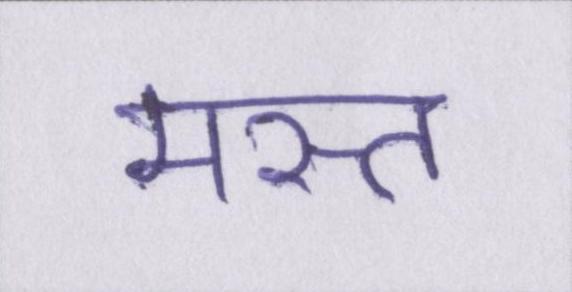 मस्त